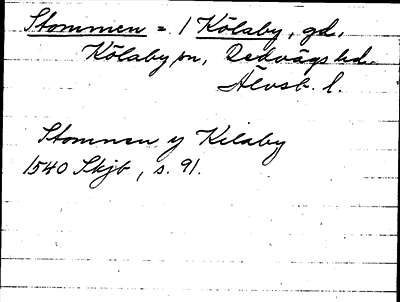 Stommen = 1 Kölaby, gd.,
Kölaby sn, Redvägs hd.
Älvsb. l.
Stomnen y Kilaby
1540 Skjb, s. 91.